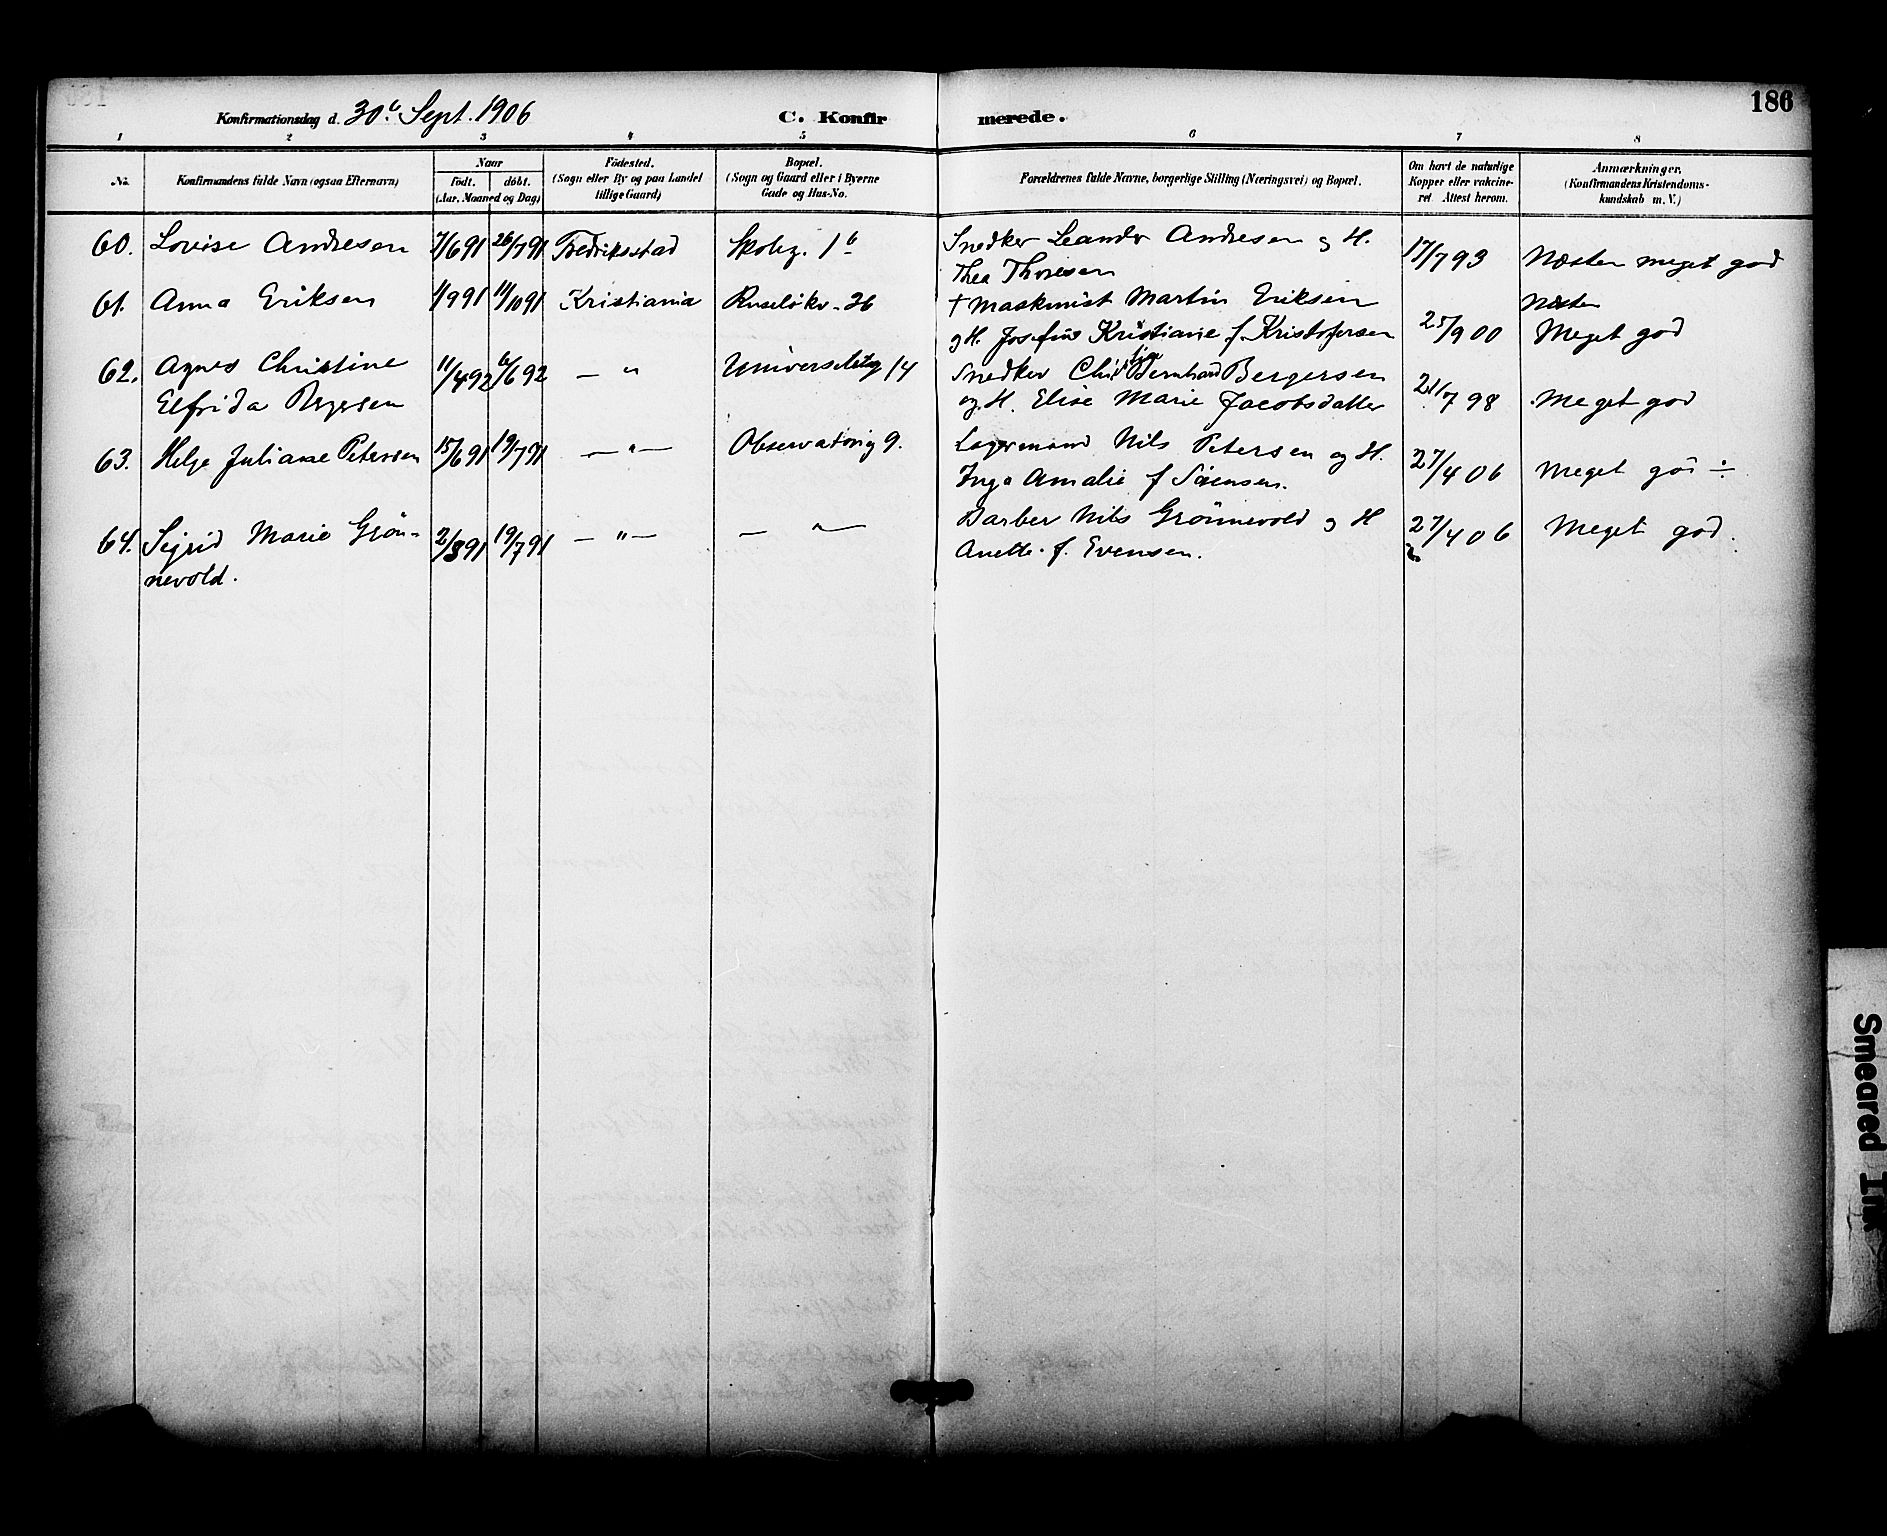 186
Konfirmationsdag d. 30te Sept. 1906
C. Konfirmerede.
1 2 3 4 5 6 7 8
No. Konfirmandens fulde Navn (ogsaa Efternavn) Naar Födested. Bopæl. Forældrenes fulde Navne, borgerlige Stilling (Næringsvei) og Bopæl. Om havt de naturlige Anmærkninger.
födt. döbt. (Sogn eller By og paa Landet (Sogn og Gaard eller i Byerne Kopper eller vakcine- (Konfirmandens Kristendoms-
(Aar, Maaned og Dag) tillige Gaard) Gade og Hus-No. ret Attest herom. kundskab m. V.)
60. Lovise Andresen 7/6 91 26/7 91 Fredriksstad Skoleg. 1b Snedker Leander Andresen og H. 17/7 93 Næsten meget god
Thea Thoresen
61. Anna Eriksen 1/9 91 11/10 91 Kristiania Ruseløkv. 26 † Maskinist Martin Eriksen Næsten
og H. Josefine Kristiane f. Kristofersen 25/9 00 Meget god
62. Agnes Christine 11/4 92 6/6 92 — " Universitetsg 14 Snedker Bernhard Bergersen
Elfrida Bergersen og H. Elise Marie Jacobsdatter 21/7 98 Meget god
63. Helga Juliane Petersen 15/6 91 19/7 91 — " — Observatorieg 9. Lagermand Nils Petersen og H.
Inga Amalie f Sørensen. 27/4 06 Meget god ÷
64. Sigrid Marie Grön- 2/3 91 19/7 91 — " — — " — Barber Nils Grönnevold og H 27/4 06 Meget god.
nevold. Anette f. Evensen.
Smeared Ink